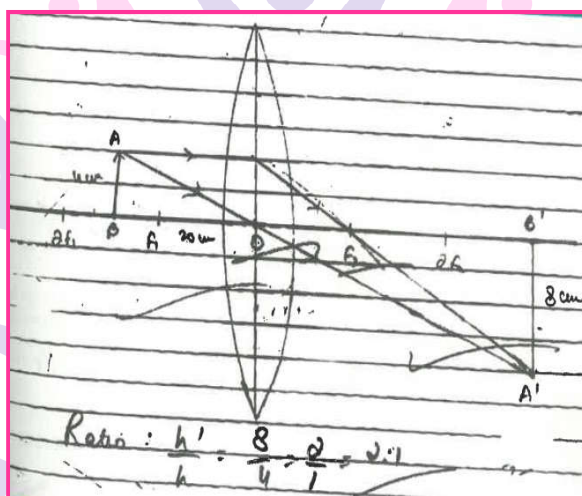 A
4cm
2F₁ B F₁ 20cm O F₂ 2F₂ B'
8cm
A'
Ratio : h'/h = 8/4 = 2/1 = 2:1